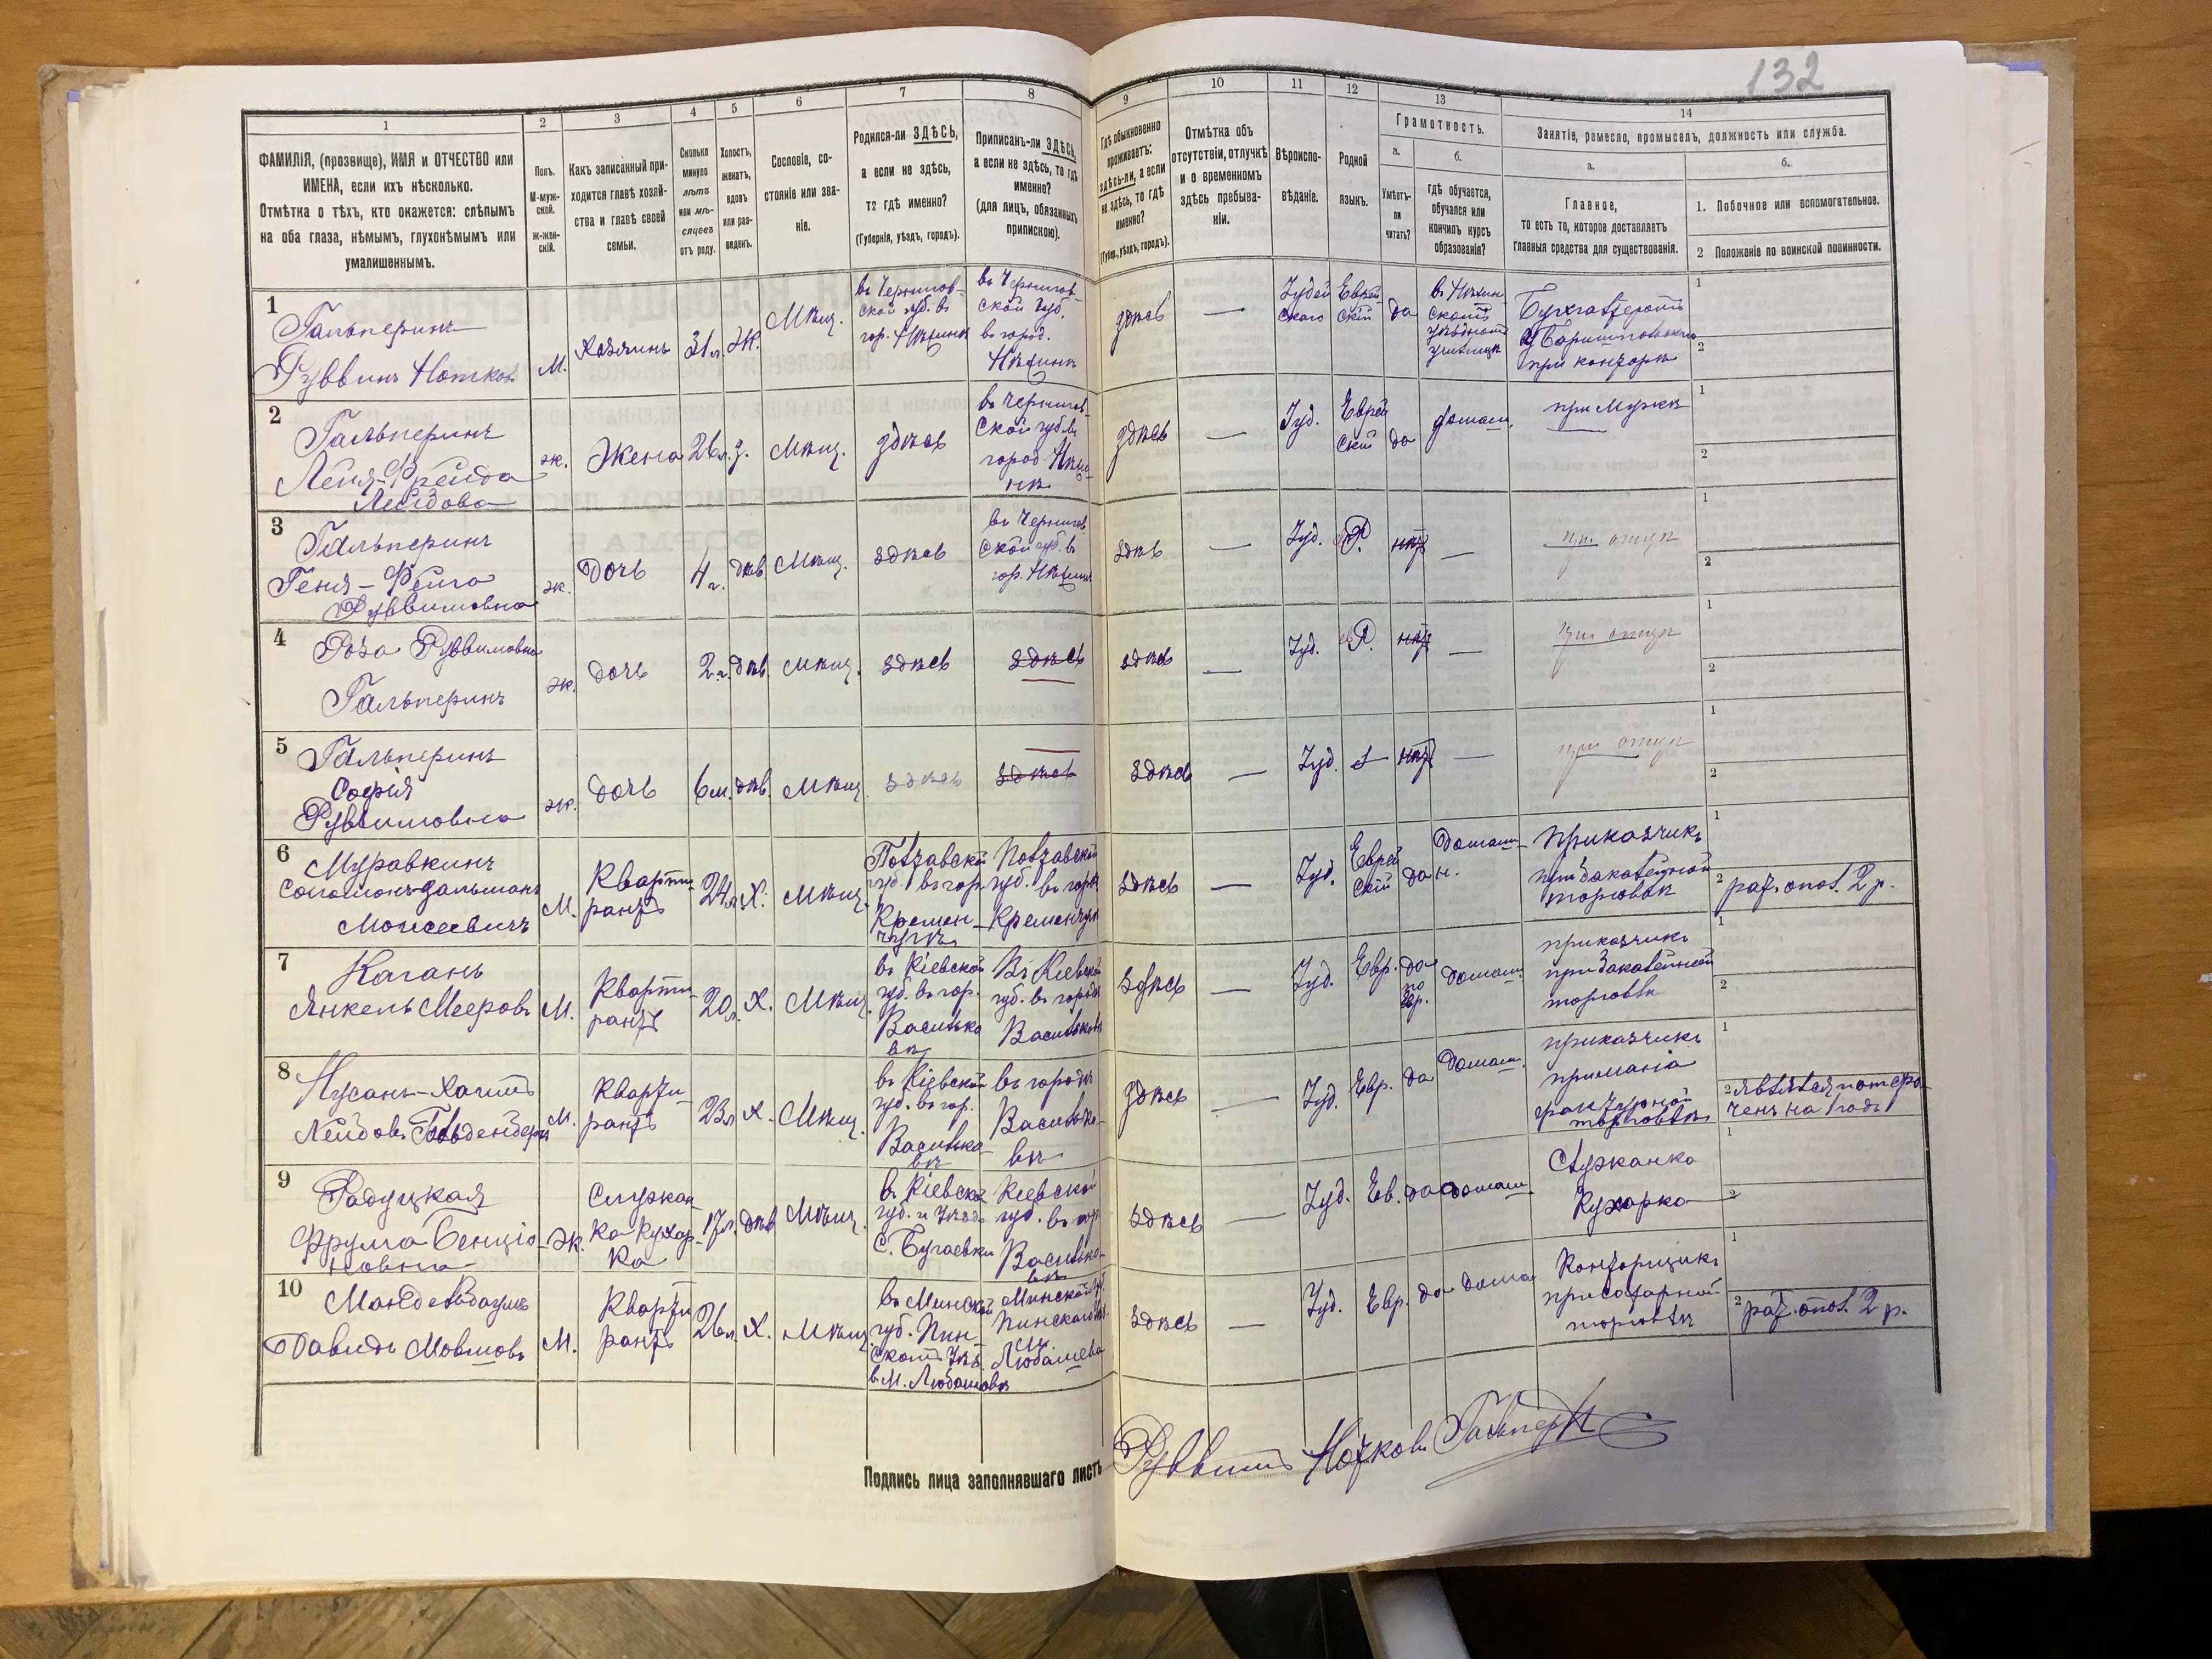 132
1
2
3
4
5
6
7
8
9
10
11
12
13
14
ФАМИЛІЯ, (прозвище), ИМЯ и ОТЧЕСТВО или
ИМЕНА, если ихъ нѣсколько.
Отмѣтка о тѣхъ, кто окажется: слѣпымъ
на оба глаза, нѣмымъ, глухонѣмымъ или
умалишеннымъ.
Полъ.
М-муж-
ской.
Ж-жен-
скій.
Какъ записанный при-
ходится главѣ хозяй-
ства и главѣ своей
семьи.
Сколько
минуло
лѣтъ
или мѣ-
сяцевъ
отъ роду.
Холостъ,
женатъ,
вдовъ
или раз-
веденъ.
Сословіе, со-
стояніе или зва-
ніе.
Родился-ли ЗДѢСЬ,
а если не здѣсь,
то гдѣ именно?
(Губернія, уѣздъ, городъ).
Приписанъ-ли ЗДѢСЬ,
а если не здѣсь, то гдѣ
именно?
(для лицъ, обязанныхъ
припискою).
Гдѣ обыкновенно
проживаетъ:
здѣсь-ли, а если
не здѣсь, то гдѣ
именно?
(Губер., уѣздъ, городъ).
Отмѣтка объ
отсутствіи, отлучкѣ
и о временномъ
здѣсь пребыва-
ніи.
Вѣроиспо-
вѣданіе.
Родной
языкъ.
Грамотность.
а.
Умѣетъ-
ли
читать?
б.
гдѣ обучается,
обучался или
кончилъ курсъ
образованія?
Занятіе, ремесло, промыселъ, должность или служба.
а.
Главное,
то есть то, которое доставляетъ
главныя средства для существованія.
б.
1. Побочное или вспомогательное.
2 Положеніе по воинской повинности.
1
Гальперинъ
Руввинъ Нотковъ
М.
Хозяинъ
31 л.
Ж.
Мѣщ.
въ Чернигов-
ской губ. въ
гор. Нѣжинѣ
въ Чернигов-
ской губ.
въ город.
Нѣжинѣ
здѣсь
—
Іудей
скаго
Еврей-
скій
да
въ Нѣжин-
скомъ
уѣздномъ
училищѣ
Бухгалтеромъ
при конторѣ
1
2
2
Гальперинъ
Лея-Фрейда
Лейбова
ж.
Жена
26 л.
з.
Мѣщ.
здѣсь
въ Чернигов-
ской губ. въ
город Нѣжи-
нѣ
здѣсь
—
Іуд.
Еврей
скій
да
домаш.
при Мужѣ
1
2
3
Гальперинъ
Геня-Фейга
Руввимовна
ж.
Дочь
4 г.
дѣв.
Мѣщ.
здѣсь
въ Чернигов.
ской губ. въ
гор. Нѣжинѣ
здѣсь
—
Іуд.
нѣтъ
—
при отцѣ
1
2
4
Роза Руввимовна
Гальперинъ
ж.
дочь
2 г.
дѣв.
мѣщ.
здѣсь
здѣсь
здѣсь
—
Іуд.
нѣтъ
—
при отцѣ
1
2
5
Гальперинъ
Софія
Руввимовна
ж.
дочь
6 м.
дѣв.
мѣщ.
здѣсь
здѣсь
здѣсь
—
Іуд.
нѣтъ
—
при отцѣ
1
2
6
Муравкинъ
Соломонъ-Зальманъ
Моисеевичъ
М.
Кварти-
рантъ
24 л.
Х.
мѣщ.
Полтавской
губ. въ гор.
Кремен-
чугѣ
Полтавской
губ. въ горо
Кременчугѣ
здѣсь
—
Іуд.
Еврей
скій
да
Домаш-
н.
приказчикъ
при бакалейной
торговлѣ
1
2 рат. опол. 2 р.
7
Каганъ
Янкель Мееровъ
М.
Кварти-
рантъ
20 л.
Х.
Мѣщ.
въ Кіевской
губ. въ гор.
Василько
вѣ
Въ Кіевской
губ. въ городѣ
Васильковѣ
здѣсь
—
Іуд.
Евр.
да
по
Евр.
домаш.
приказчикъ
при бакалейной
торговлѣ
1
2
8
Нусанъ-Хаимъ
Лейбовъ Гольденбергъ
М.
Кварти-
рантъ
23 л.
Х.
Мѣщ.
въ Кіевской
губ. въ гор.
Василько
вѣ
въ городѣ
Василько-
вѣ
здѣсь
—
Іуд.
Евр.
да
Домаш.
приказчикъ
торговлѣ
1
2
9
Радуцкая
Фрума Бенціо-
новна
Ж.
Служан-
ка Кухар-
ка
17 л.
дѣв
Мѣщ.
въ Кіевской
губ. и Уѣздѣ
с. Бугаевки
Кіевской
губ. въ гор
Василько-
вѣ
здѣсь
—
Іуд.
Ев.
да
домаш.
Служанка
Кухарка
1
2
10
Мандельбаумъ
Давидъ Мовшовъ
М.
Кварти
рантъ
26 л.
Х.
Мѣщ.
въ Минской
губ. Пин-
скомъ Уѣз.
въ М. Любашовѣ
Минской губ.
Пинскаго
Любашева
здѣсь
—
Іуд.
Евр.
да
дома
Конторщикъ
при сахарной
торговлѣ
1
2 рат. опол. 2 р.
Подпись лица заполнявшаго листъ
Руввимъ Нотковъ Гальперинъ